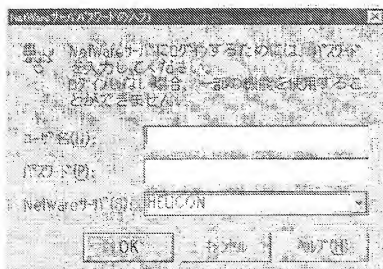 NetWareサーバパスワードの入力
NetWareサーバにログインするためには、パスワード
を入力してください。
ログインしない場合、一部の機能を使用するこ
とができません。
ユーザー名(U):
パスワード(P):
NetWareサーバ(S): HELICON
OK キャンセル ヘルプ(H)